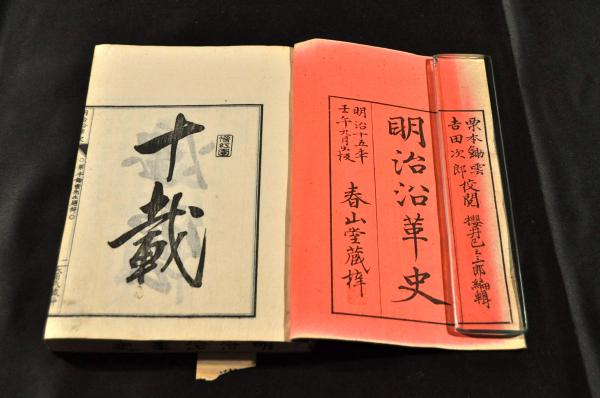 栗本鋤雲
吉田次郎 校閲 櫻井邑三郎編輯
明治沿革史
明治十五年
壬午九月出版
春山堂蔵梓
十載